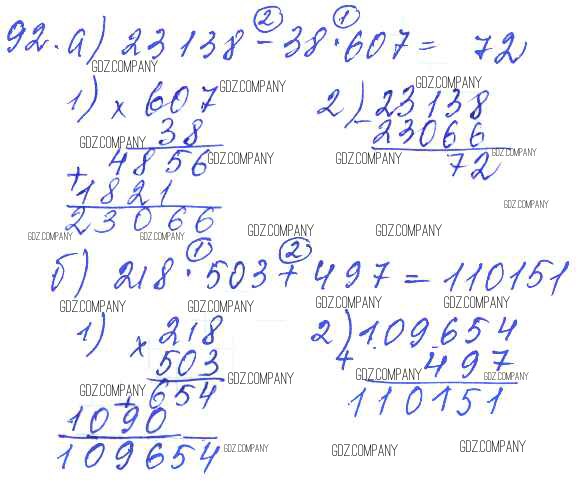 ② ①
92. а) 23138 - 38 · 607 = 72
GDZ.COMPANY GDZ.COMPANY GDZ.COMPANY
1) × 607 2) - 23138
38 23066
GDZ.COMPANY GDZ.COMPANY GDZ.COMPANY GDZ.COMPANY
4856 72
+ 1821
23066
GDZ.COMPANY GDZ.COMPANY GDZ.COMPANY GDZ.COMPANY GDZ.COMPANY
① ②
б) 218 · 503 + 497 = 110151
GDZ.COMPANY GDZ.COMPANY GDZ.COMPANY GDZ.COMPANY
1) × 218 2) 109654
503 + 497
GDZ.COMPANY GDZ.COMPANY GDZ.COMPANY GDZ.COMPANY
+ 654 110151
1090
109654
GDZ.COMPANY GDZ.COMPANY GDZ.COMPANY